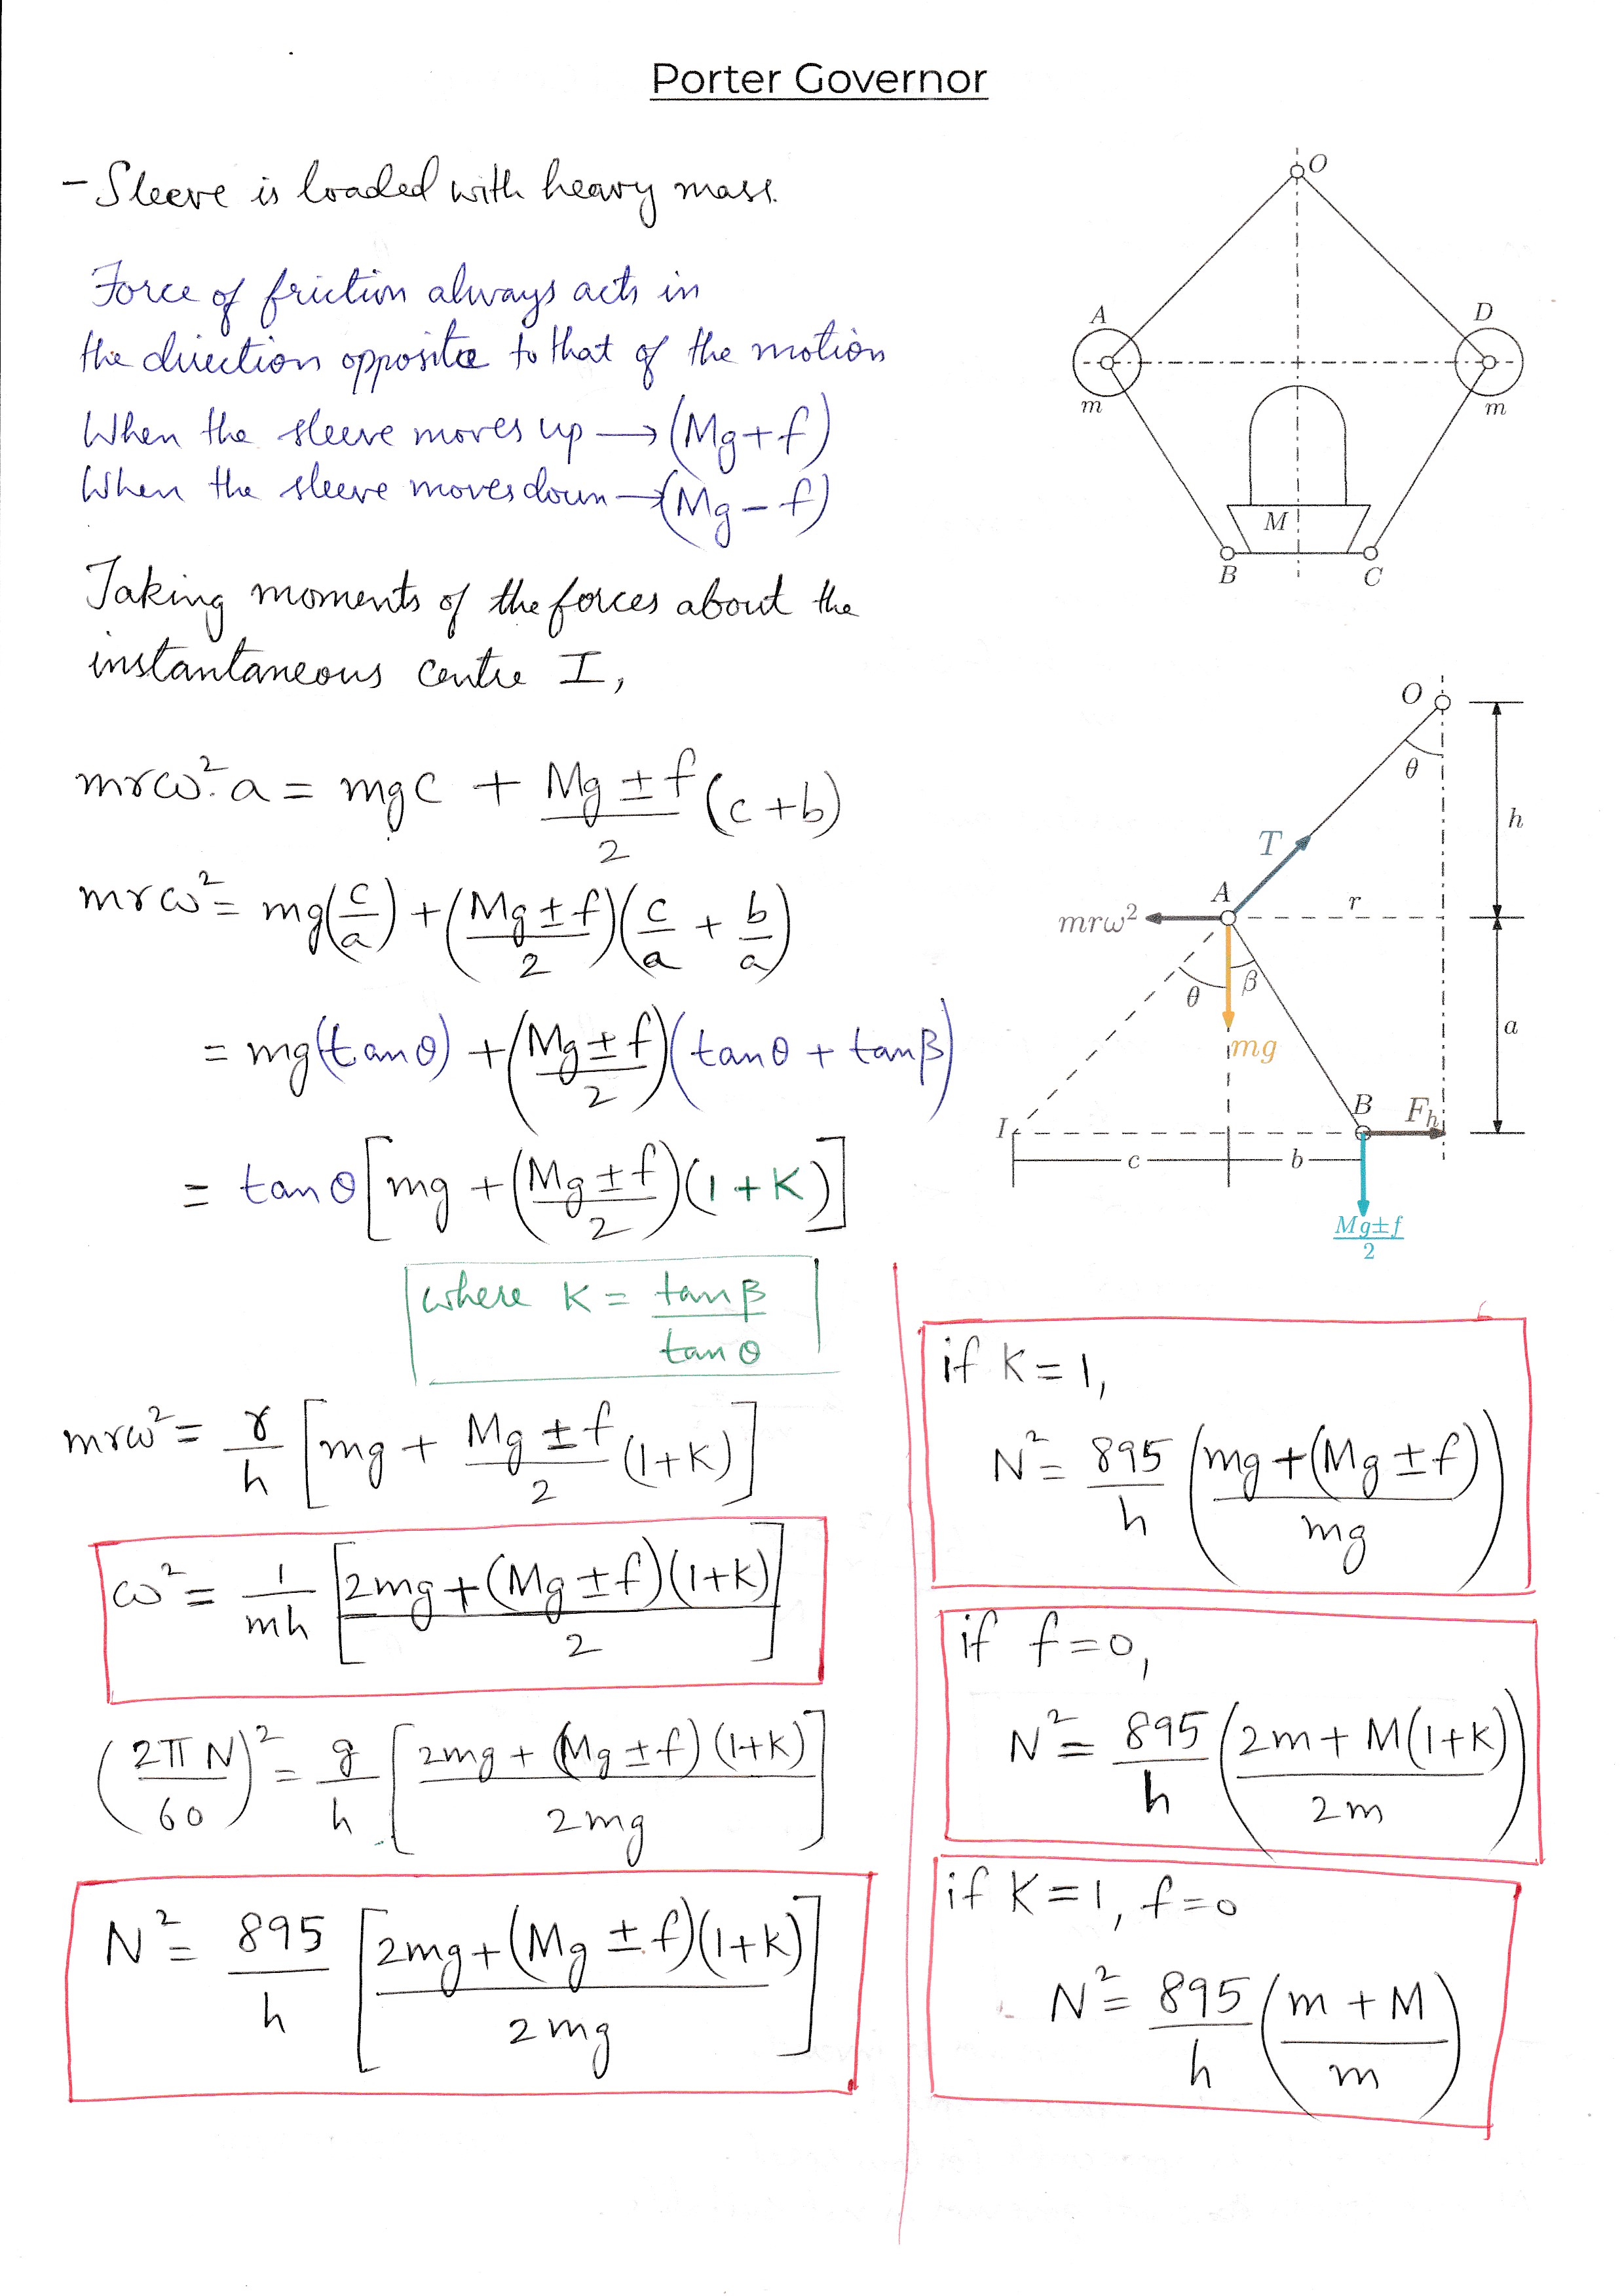 Porter Governor
- Sleeve is loaded with heavy mass.
Force of friction always acts in
the direction opposite to that of the motion
When the sleeve moves up → (Mg + f)
When the sleeve moves down → (Mg - f)
Taking moments of the forces about the
instantaneous centre I,
mrω². a = mgc + (Mg ± f)/2 (c + b)
mrω² = mg(c/a) + ((Mg ± f)/2)(c/a + b/a)
= mg(tanθ) + ((Mg ± f)/2)(tanθ + tanβ)
= tanθ [mg + ((Mg ± f)/2)(1 + K)]
where K = tanβ/tanθ
mrω² = r/h [mg + (Mg ± f)/2 (1+K)]
ω² = 1/mh [(2mg + (Mg ± f)(1+K))/2]
(2πN/60)² = g/h [(2mg + (Mg ± f)(1+K))/2mg]
N² = 895/h [(2mg + (Mg ± f)(1+K))/2mg]
O
A
D
m
m
M
B
C
O
θ
h
T
A
r
mrω²
θ
β
mg
a
I
B
F_h
c
b
(Mg±f)/2
if K = 1,
N² = 895/h ((mg + (Mg ± f))/mg)
if f = 0,
N² = 895/h ((2m + M(1+K))/2m)
if K = 1, f = 0
N² = 895/h ((m + M)/m)